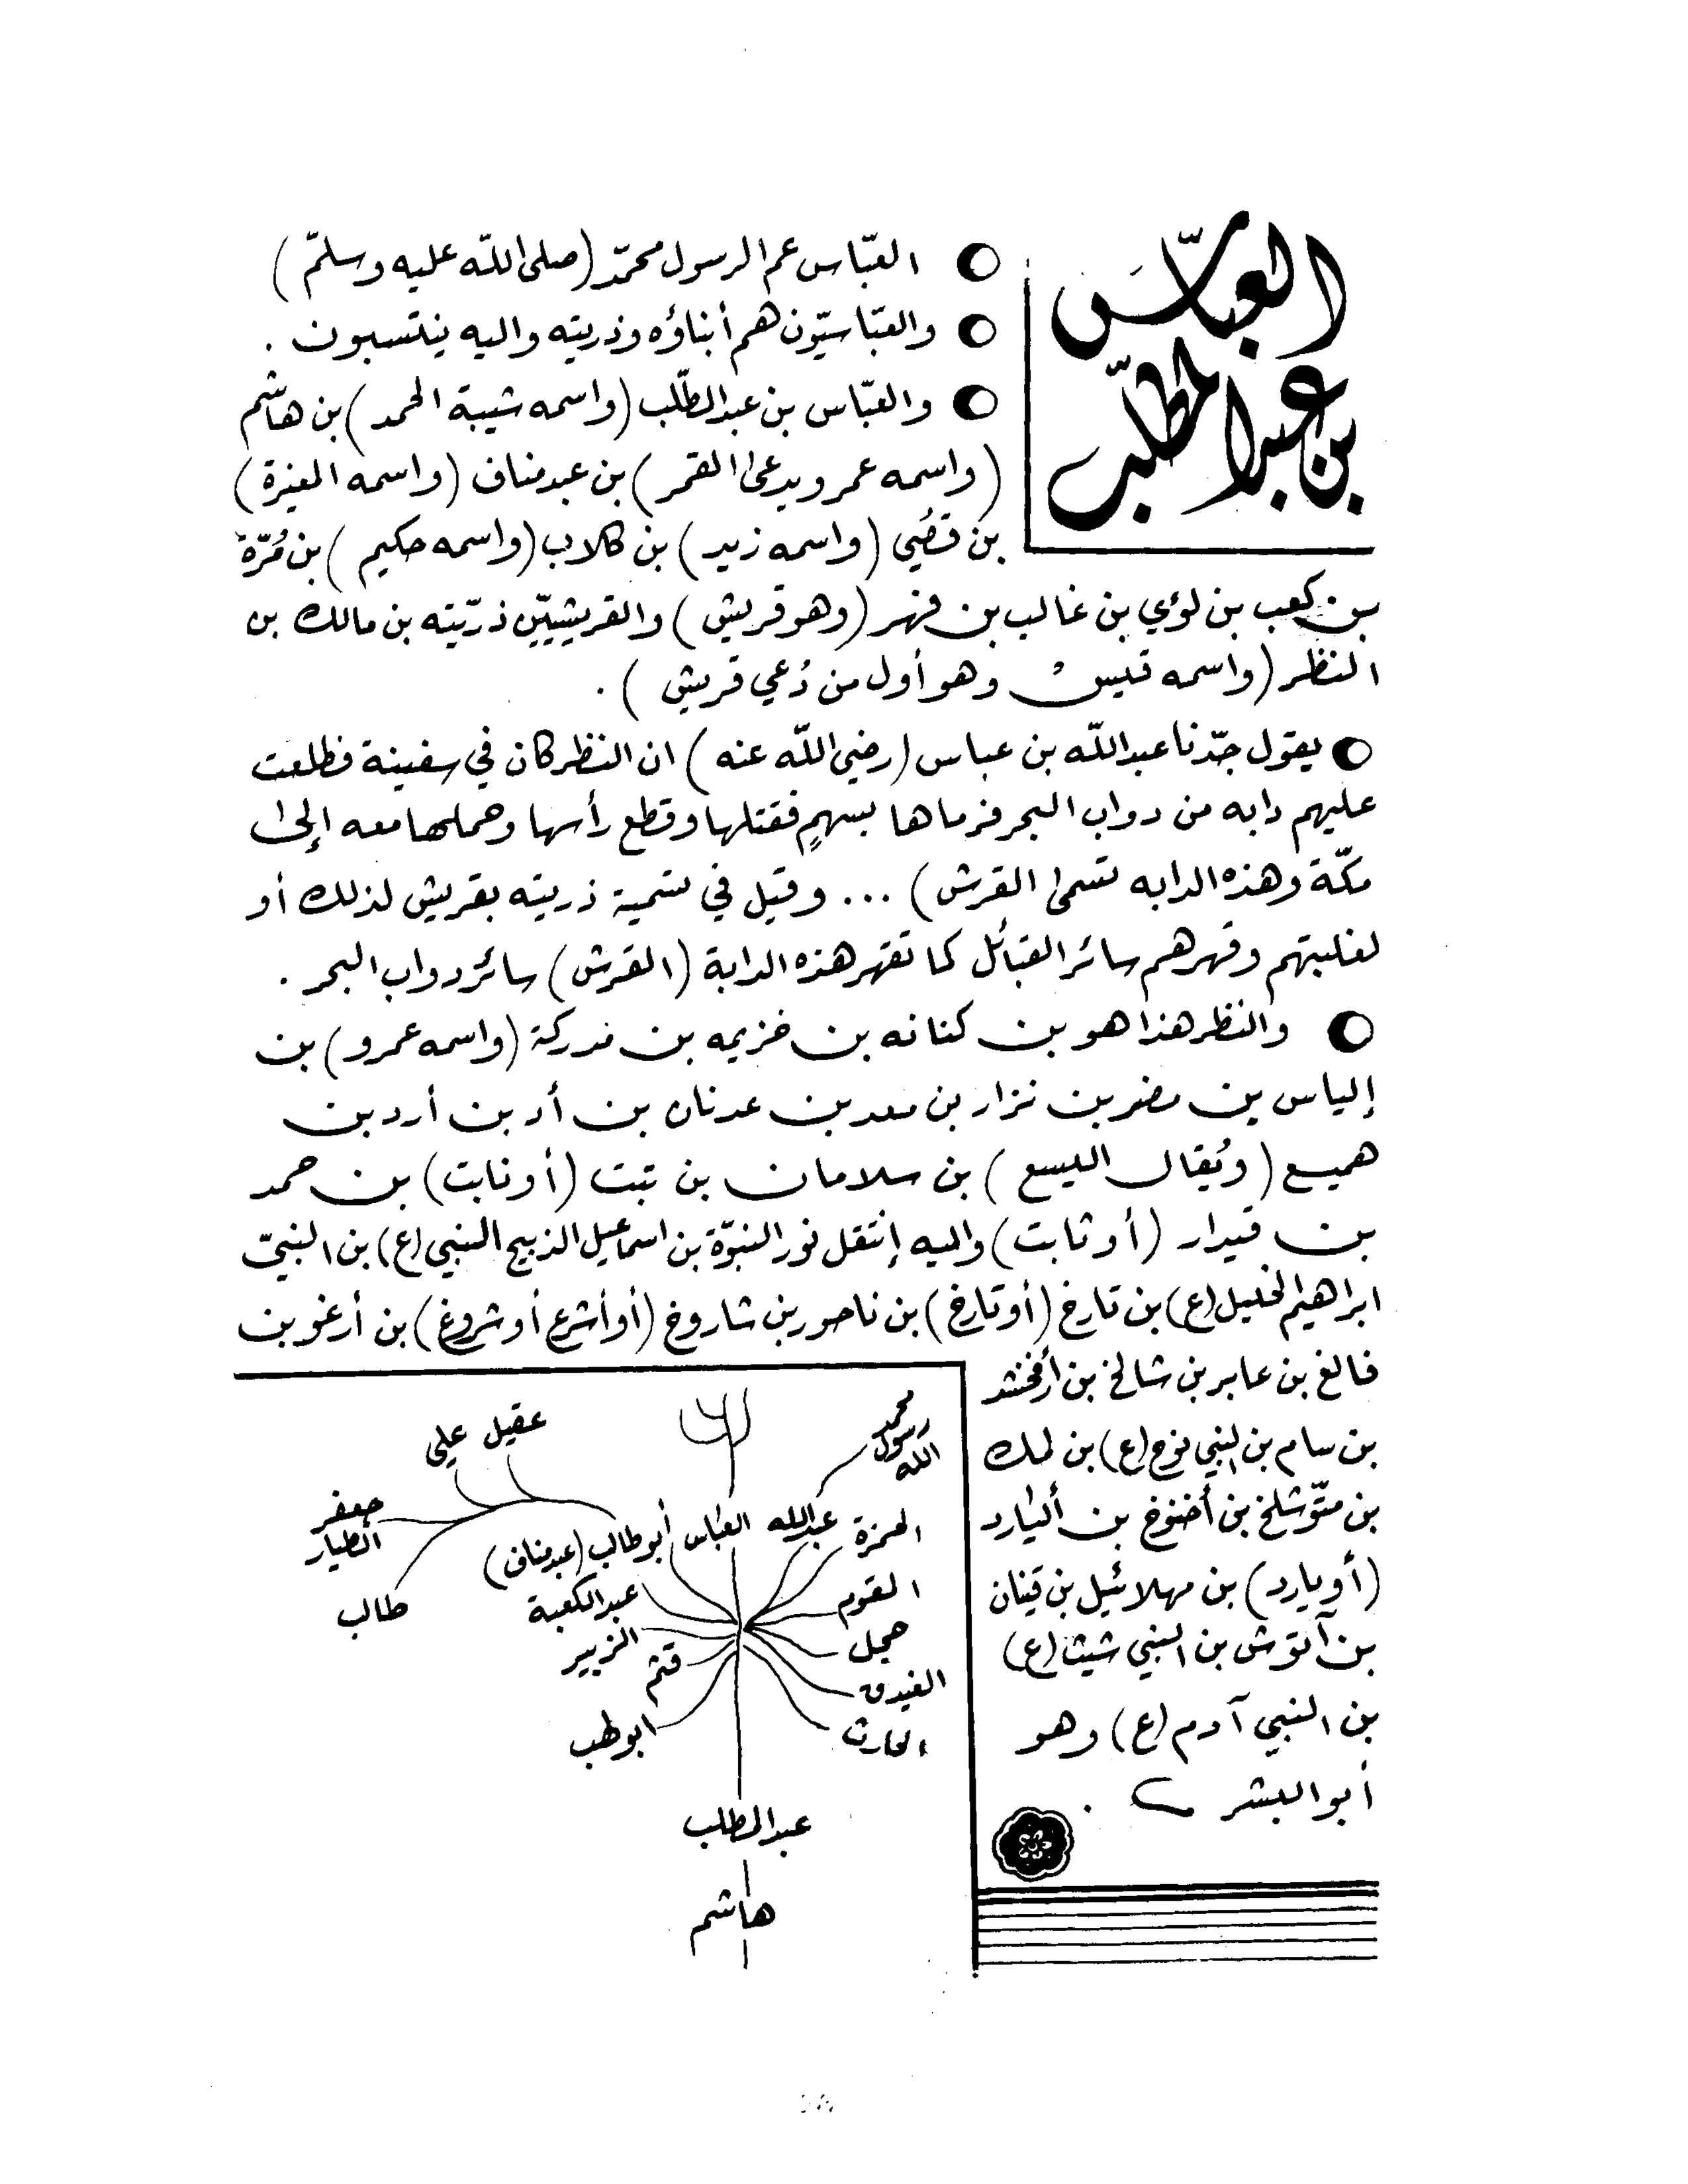 العبّاس
بن عبد المطّلب
العبّاس عم الرسول محمّد (صلى اللّه عليه وسلمّ)
والعبّاسيّون هم أبناؤه وذريته واليه ينتسبون .
والعبّاس بن عبدالمطّلب (واسمه شيبة الحمد) بن هاشم
(واسمه عمر ويدعى القمر) بن عبدمناف (واسمه المغيرة)
بن قصُي (واسمه زيد) بن كلاب (واسمه حكيم) بن مُرّة
بن كعب بن لؤي بن غالب بن فهر (وهو قريش) والقريشييّن ذريّته بن مالك بن
النظر (واسمه قيس وهو أول من دُعي قريش) .
يقول جدّنا عبداللّه بن عباس (رضي اللّه عنه) ان النظر كان في سفينة فطلعت
عليهم دابه من دواب البحر فرماها بسهمٍ فقتلها وقطع رأسها وحملها معه إلى
مكّة وهذه الدابه تسمى القرش) ... وقيل في تسمية ذريته بقريش لذلك أو
لغلبتهم وقهرهم سائر القبائل كما تقهر هذه الدابة (القرش) سائر دواب البحر .
والنظر هذا هو بن كنانه بن خزيمه بن مدركة (واسمه عمرو) بن
إلياس بن مضر بن نزار بن معد بن عدنان بن أد بن أرد بن
هميع (ويُقال اليسع) بن سلامان بن تبت (أو نابت) بن حمد
بن قيدار (أو ثابت) واليه إنتقل نور النبوّة بن اسماعيل الذبيح النبي (ع) بن النبيّ
ابراهيم الخليل (ع) بن تارخ (أو تارخ) بن ناحور بن شاروخ (أو أشرع أو شروغ) بن أرغو بن
فالغ بن عابر بن شالخ بن أرفخشد
بن سام بن النبي نوح (ع) بن لمك
بن متّوشلخ بن أخنوخ بن أليارد
(أو يارد) بن مهلائيل بن قينان
بن آنوش بن النبي شيث (ع)
بن النبي آدم (ع) وهو
أبو البشر .
محمد
رسول
الله
عقيل علي
جعفر
الطيار
طالب
الحمزة عبدالله العباس أبوطالب (عبدمناف)
المقوم
عبدالكعبة
حجل
الزبير
قثم
الغيدق
الحارث
ابولهب
عبدالمطلب
هاشم